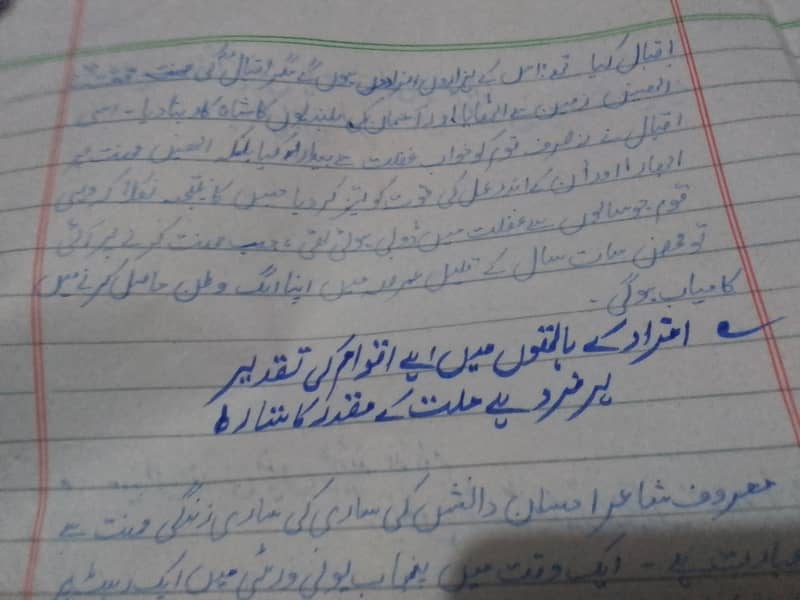 اقبال کیا تو اس کے ہزاروں افراد ہوں گے مگر اقبال کی محنت
انھیں زمین سے اٹھایا اور آسمان کی بلندیوں کا شاہ بنا دیا۔ اسی
اقبال نے نہ صرف قوم کو خواب غفلت سے بیدار کیا بلکہ انھیں محنت پر
ابھارا اور ان کے اندر عمل کی قوت کو تیز کر دیا جس کا نتیجہ نکلا کہ وہی
قوم جو سالوں سے غفلت میں ڈوبی ہوئی تھی، جب محنت کرنے پر آئی
تو محض سات سال کے قلیل عرصہ میں اپنا الگ وطن حاصل کرنے میں
کامیاب ہو گی۔
افراد کے ہاتھوں میں ہے اقوام کی تقدیر
ہر فرد ہے ملت کے مقدر کا ستارہ
معروف شاعر احسان دانش کی ساری کی ساری زندگی محنت سے
عبارت ہے۔ ایک وقت میں پنجاب یونی ورسٹی میں ایک